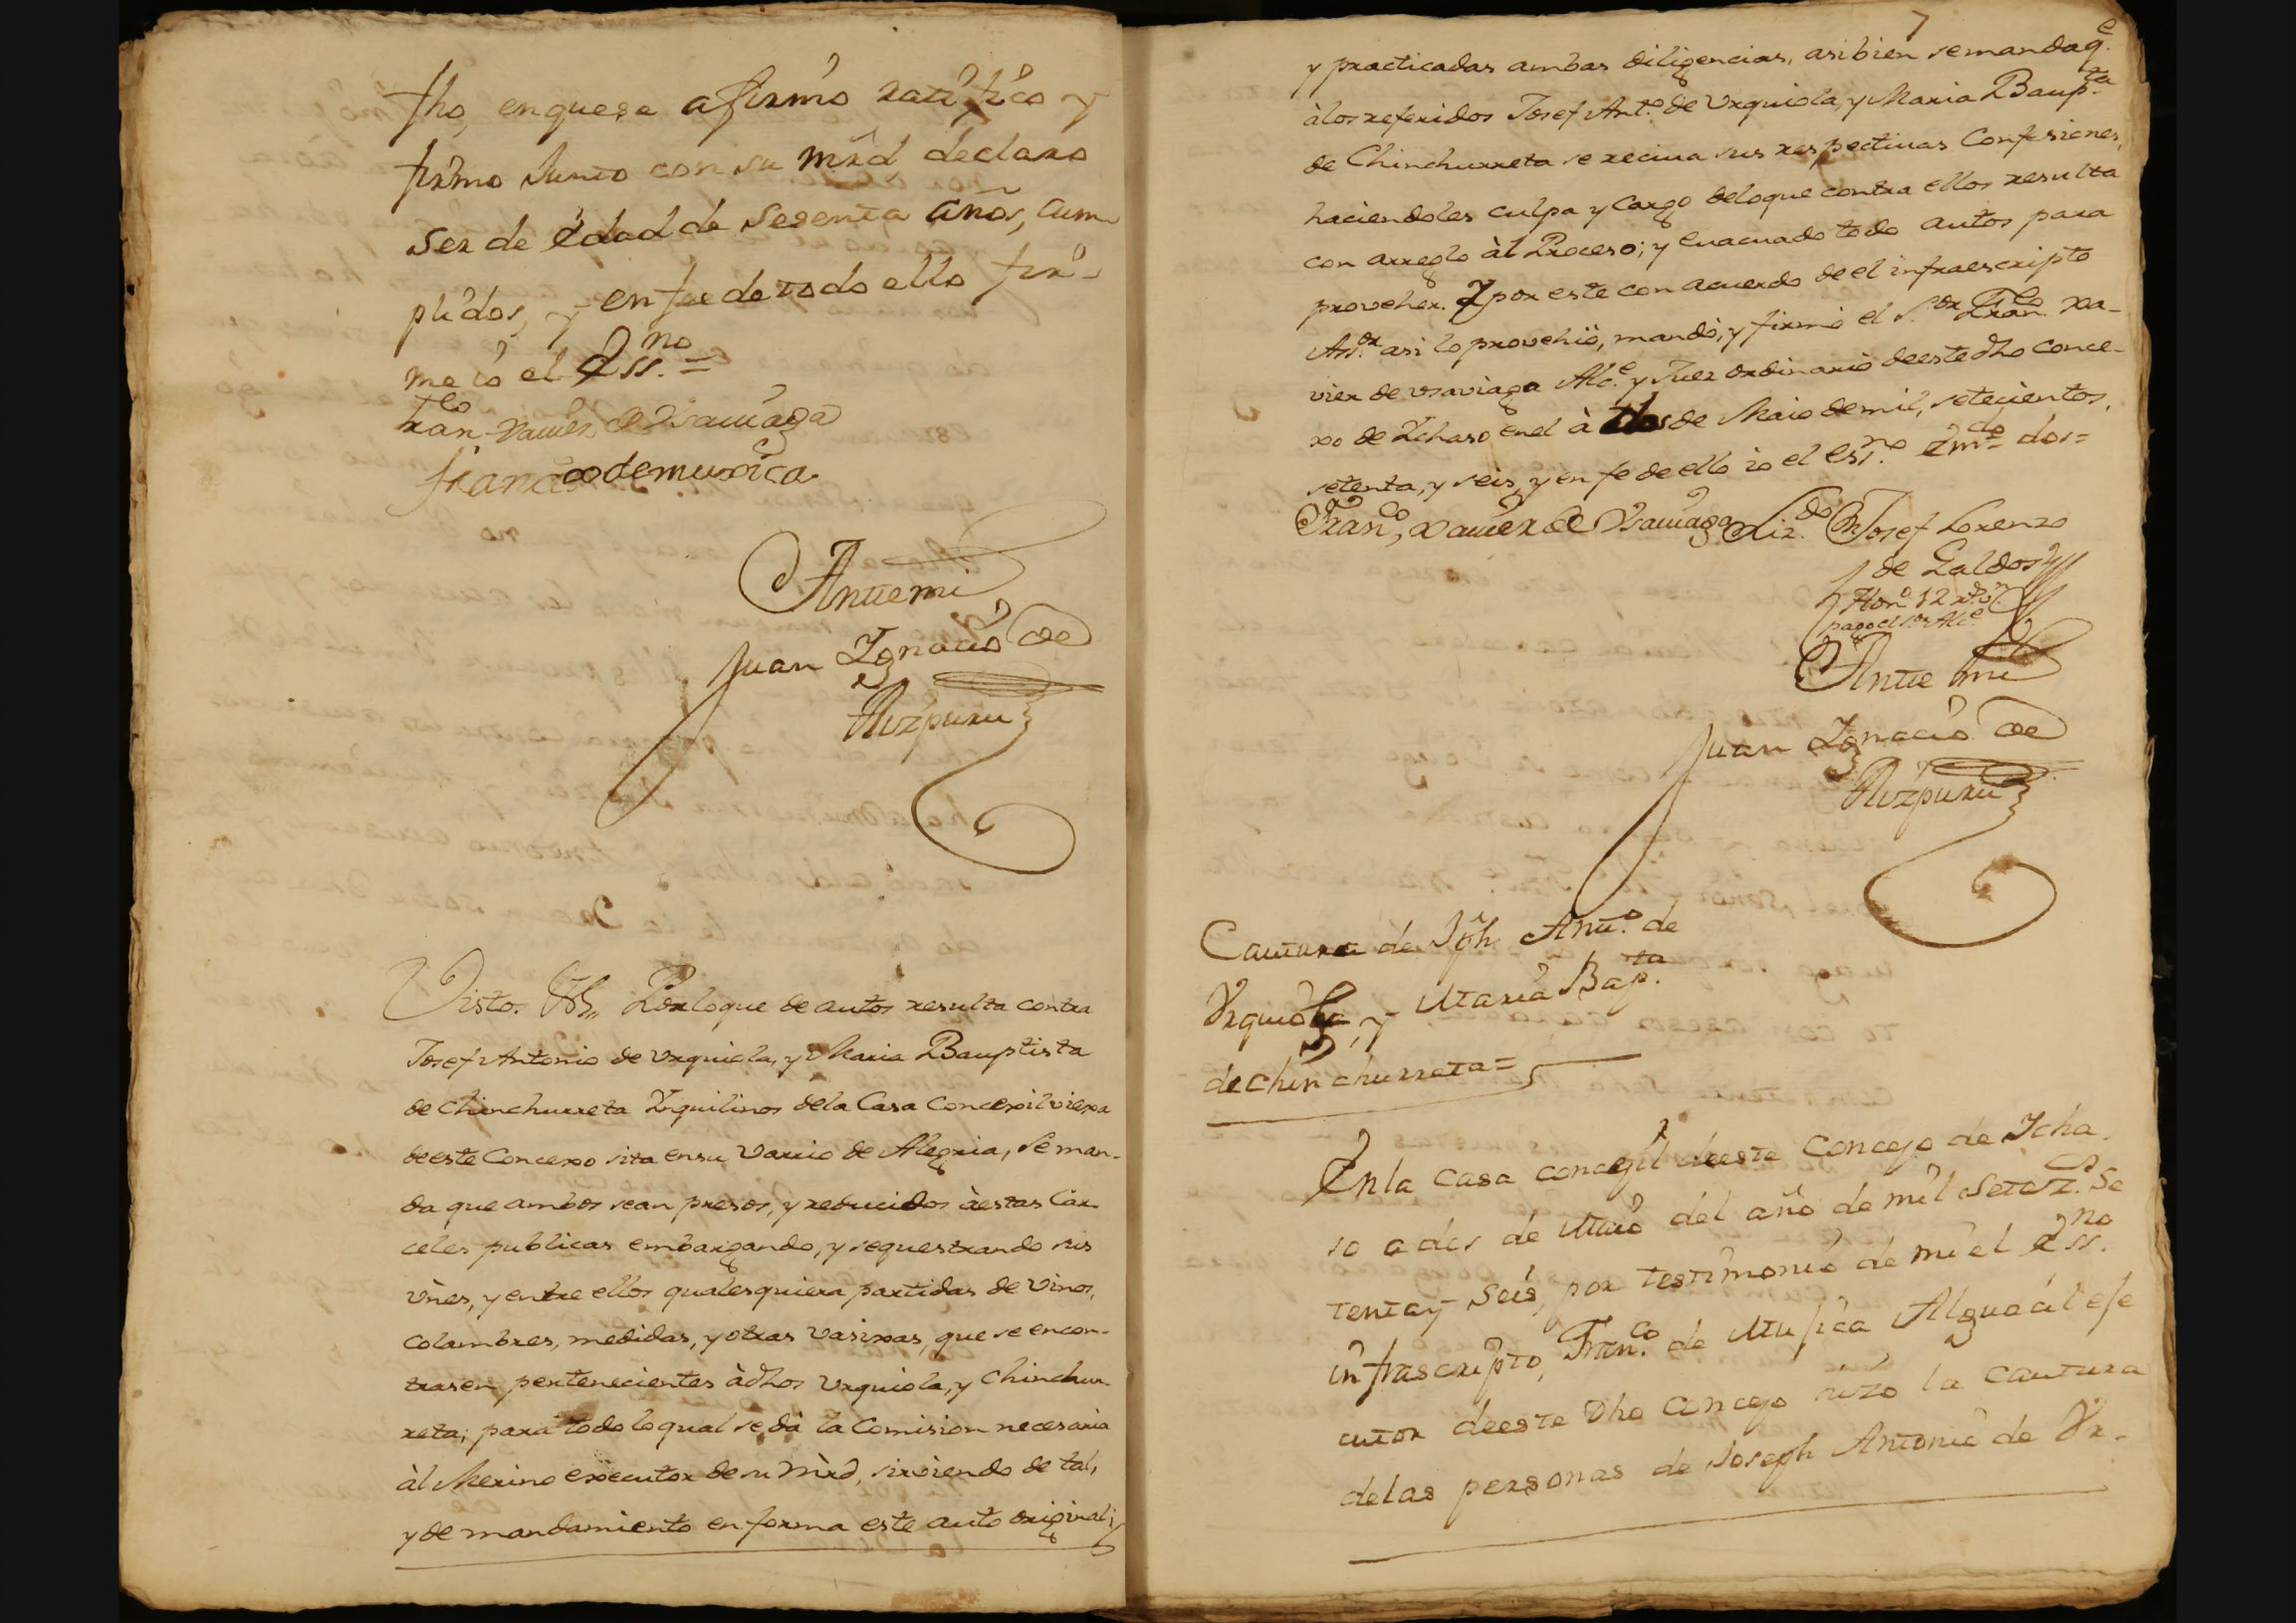 fho, enquese afirmó ratificó y
firmó Junto con su mrd, declaro
ser de edad de Sesenta años, cum
plidos, y en fee de todo ello fir-
me io el Ess.no =
Franco Xavier de Vsauiaga
francisco de muxica
Ante mi
Juan Ignacio de
Aizpuru
Visto. Por loque de autos resulta contra
Josef Antonio de Urquiola, y Maria Bauptista
de Chinchurreta Ynquilinos dela Casa Concexil viexa
deeste Concexo sita ensu Varrio de Alegria, se man-
da que ambos sean presos, y reducidos àestas Car-
celes publicas embargando, y sequestrando sus
vines, y entre ellos qualesquiera partidas de Vinos,
Colambres, medidas, y otras Vasixas, que se encon-
trasen pertenecientes àdhos Urquiola, y Chinchur-
reta; para todo loqual se dà la Comision necesaria
àl Merino executor de su Mrd, sirviendo de tal,
y de mandamiento en forma este auto original;
7
y practicadas ambas diligencias, asibien semandaq.e
àlos referidos Josef Ant.o de Urquiola, y Maria Baup.ta
de Chinchurreta se reciua sus respectiuas Confesiones,
haciendoles culpa y Cargo deloque contra ellos resulta
con arreglo àl Proceso; y evacuado todo autos para
proveher. Y por este con acuerdo de el infraescripto
As.or asi lo provehió, mandó, y firmó el S.or Fran.co Xa-
vier de vsaviaga Alc.e y Juez ordinario deeste dho conce-
xo de Ychaso enel à dos de Maio demil, setecientos,
setenta, y seis, y en fe de ello io el es.no em.do dos=
Fran.co Xavier de Vsauiaga Liz.do Dn Josef Lorenzo
de Galdos
Hon.o 12 r.s
pagó el s.or Alc.e
Ante mi
Juan Ignacio de
Aizpuru
Cautura de Jph Ant.o de
Urquiola, y Maria Bap.ta
de chinchurreta=
Enla Casa concegil deeste Concejo de Icha
so a dos de Maio del año de mil Setez.s Se
tenta y Seis, por testimonio de mi el Ess.no
infrascripto, Fran.co de Mujica Alguacil efe
cutor deeste dho Concejo hizo la Cautura
delas personas de Joseph Antonio de Ur-